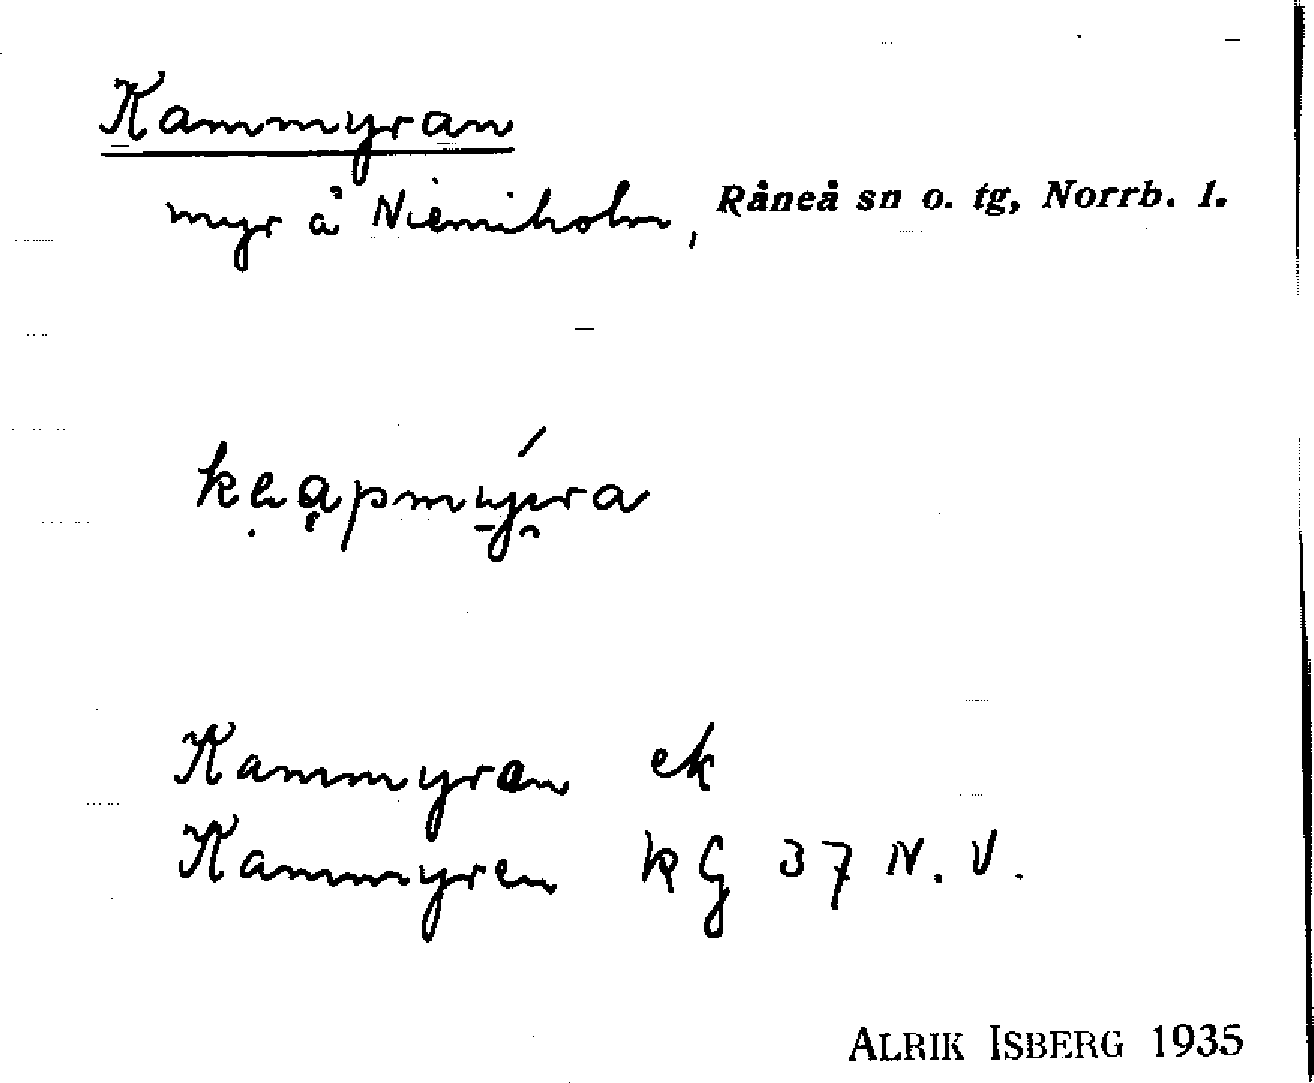 Kammyran
myr å Niemiholm, Råneå sn o. tg, Norrb. l.
Kammyran ek
Kammyren kG 37 N.V.
ALRIK ISBERG 1935